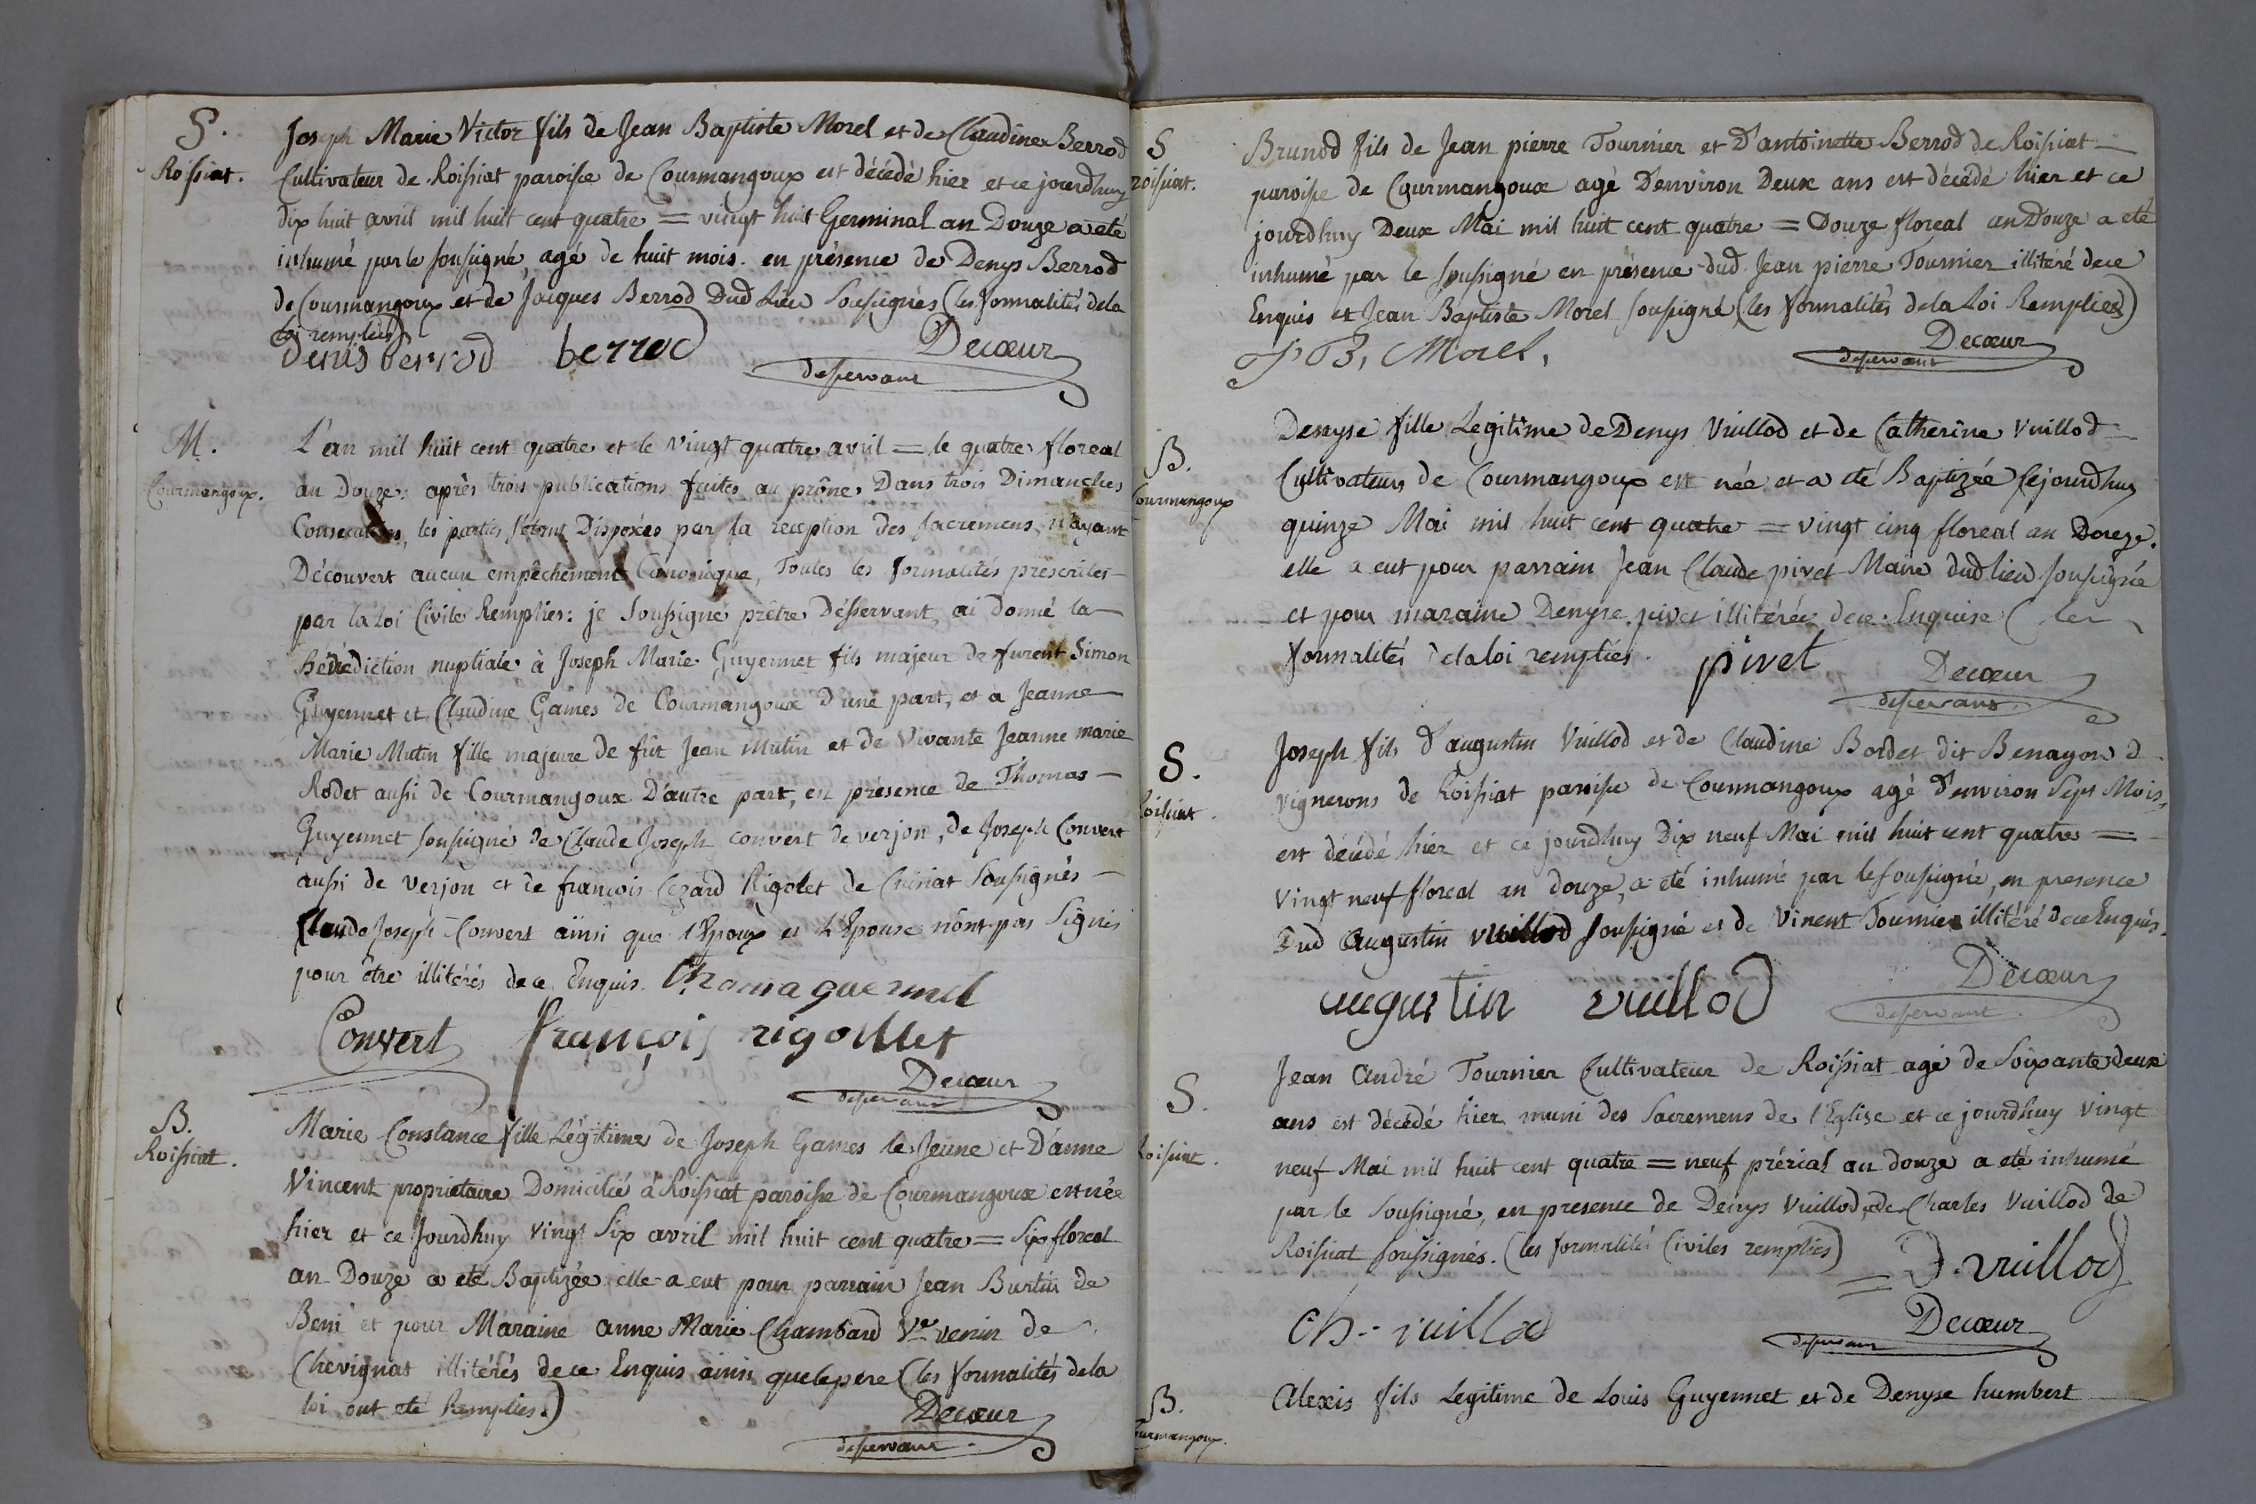 S.
Roissiat.
Joseph Marie Victor fils de Jean Baptiste Morel et de Claudine Berrod
Cultivateur de Roissiat paroisse de Courmangoux est décédé hier et ce jourdhuy
dix huit avril mil huit cent quatre = vingt huit Germinal an Douze a été
inhumé par le soussigné, agé de huit mois. en présence de Denys Berrod
de Courmangoux et de Jacques Berrod Dud Lieu Soussignés (les formalités de la
loi remplies)
Denis berrod berrod Decœur
desservant
M.
Courmangoux.
L'an mil huit cent quatre et le vingt quatre avril = le quatre floreal
an Douze: après trois publications faites au prône Dans trois Dimanches
Consecutives, les parties s'étant Disposées par la reception des sacremens, n'ayant
Découvert aucun empêchement Canonique, Toutes les formalités prescrites
par la Loi Civile Remplies: je Soussigné prêtre Désservant, ai donné la
bénédiction nuptiale à Joseph Marie Guyennet fils majeur de furent Simon
Guyennet et Claudine Games de Courmangoux D'une part, et a Jeanne
Marie Mutin fille majeure de fût Jean Mutin et de Vivante Jeanne marie
Rodet aussi de Courmangoux D'autre part, en présence de Thomas
Guyennet soussigné de Claude Joseph convert de verjon, de Joseph Convert
aussi de verjon et de françois Cezard Rigolet de Soussignés
Claude Joseph Convert ainsi que l'Epoux et L'Epouse n'ont pas Signés
pour être illitérés de ce Enquis. thoma
Convert françois rigollet
Decœur
desservant
B.
Roissiat.
Marie Constance fille Légitime de Joseph Games le Jeune et D'anne
Vincent propriétaire Domicilié à Roissiat paroisse de Courmangoux est née
hier et ce Jourdhuy vingt Six avril mil huit cent quatre = Six floreal
an Douze a été Baptizée elle a eut pour parrain Jean Burtin de
Beni et pour Maraine anne Marie Chambard Ve venin de
Chevignat illitérés de ce Enquis ainsi que le pere (les formalités de la
loi ont été Remplies.)
Decœur
desservant.
S
roissiat.
Brunod fils de Jean pierre Tournier et D'antoinette Berrod de Roissiat
paroisse de Courmangoux agé D'environ Deux ans est décédé hier et ce
jourdhuy Deux Mai mil huit cent quatre = Douze floreal an Douze a été
inhumé par le soussigné en présence dud. Jean pierre Tournier illitéré de ce
Enquis et Jean Baptiste Morel soussigné (les formalités de la Loi Remplies)
J B, Morel, Decœur
desservant
B.
Courmangoux
Denyse fille Legitime de Denys Vuillod et de Catherine Vuillod
Cultivateurs de Courmangoux est née et a été Baptizée Cejourdhuy
quinze Mai mil huit cent quatre = vingt cinq floreal an Douze.
elle a eut pour parrain Jean Claude pivet Maire dud lieu soussigné
et pour maraine Denyse pivet illitérée de ce Enquise (les
formalités de la loi remplies. pivet
Decœur
desservant.
S.
Roissiat.
Joseph fils d'augustin Vuillod et de Claudine Bordet dit Benayon
vignerons de Roissiat paroisse de Courmangoux agé d'environ Sept Mois
est décédé hier et ce jourdhuy Dix neuf Mai mil huit cent quatre =
vingt neuf floreal an douze, a été inhumé par le soussigné, en presence
Dud Augustin vuillod soussigné et de Vincent Tournier illitéré de ce Enquis.
augustin vuillod
Decœur
desservant.
S.
Roissiat.
Jean André Tournier Cultivateur de Roissiat agé de Soixante deux
ans est décédé hier muni des Sacremens de l'Eglise et ce jourdhuy vingt
neuf Mai mil huit cent quatre = neuf prérial an douze a été inhumé
par le soussigné, en presence de Denys Vuillod, de Charles Vuillod de
Roissiat soussignés. (les formalités Civiles remplies)
D. vuillod
Ch. vuillod
Decœur
desservant
B.
Courmangoux.
Alexis fils Legitime de Louis Guyennet et de Denyse humbert